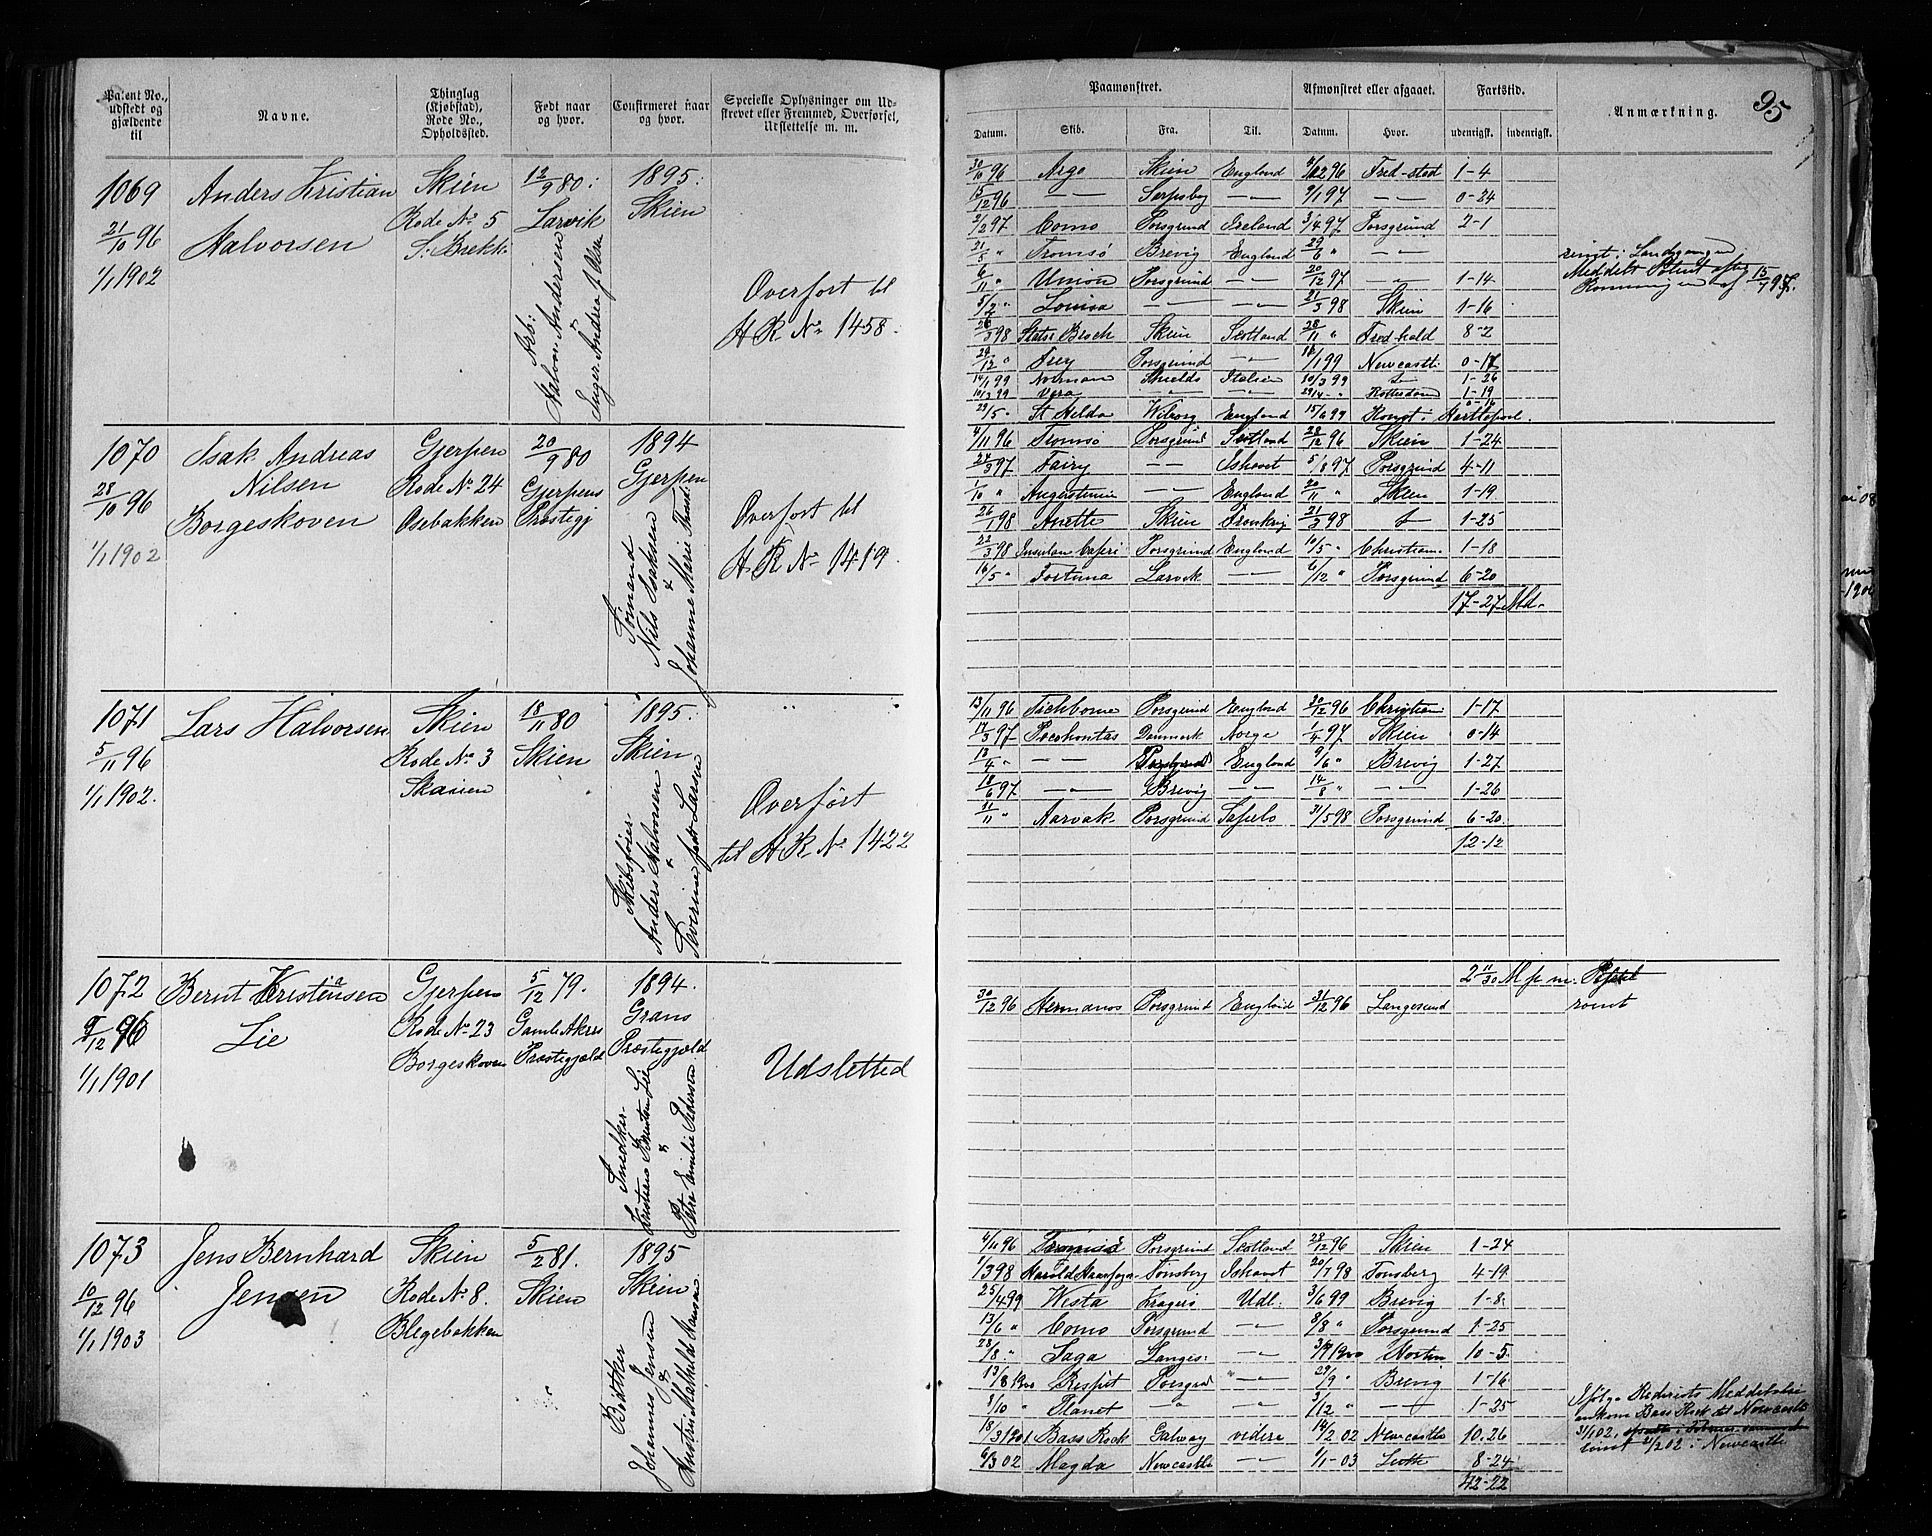 95
Patent No., udstedt og gjældende til
Navne.
Thinglag (Kjøbstad), Rode No., Opholdssted.
Født naar og hvor.
Confirmeret naar og hvor.
Specielle Oplysninger om Udstrevet eller Fremmed, Overførsel, Udslettelse m. m.
Paamønstret.
Afmønstret eller afgaaet.
Fartstid.
Anmærkning.
Datum. Skib. Fra. Til. Datum. Hvor. udenrigsk. indenrigsk.
1069
21/10 96
1/1 1902
Anders Kristian
Halvorsen
Skien
Rode No 5
S. Brekke
12/9 80.
Larvik
1895.
Skien
Arb:
Halvor Andersen
&
Inger Andrea f. Olsen
Overført til
H R No 1458.
30/10 96 Argo Skien England 96 Fredstad 1-4
15/12 96 — Sarpsborg — 9/1 97 — 0-24
2/2 97 Como Porsgrund Ireland 3/4 97 Porsgrund 2-1
21/5 " Tromsø Brevig England 29/6 " —
6/11 " Union Porsgrund — 20/12 97 — 1-14
5/2 " Louisa — — 21/3 98 Skien 1-16
28/3 98 Stats. Broch Skien Scotland 28/11 " Fredhald 8-2
29/12 " Frey Porsgrund — 16/1 99 Newcastle 0-17
14/1 99 Norman Shields Italien 10/3 99 1-26
10/3 99 Vera — — 29/4 " Rotterdam 1-19
29/5 " St Helda Wiborg England 15/6 99 Rømt i Hartlepool. 0-16
Meddelt Patent efter
Rømningen af 15/7 97.
1070
28/10 96
1/1 1902
Isak Andreas
Nilsen
Borgeskoven
Gjerpen
Rode No 24
Osebakken
20/9 80
Gjerpens
Præstegj
1894
Gjerpen
Sømand
Nils Isaksen
&
Johanne Marie
Overført til
H. R No 1419.
4/11 96 Tromsø Porsgrund Scotland 28/12 96 Skien 1-24
24/3 97 Fairy — Ishavet 5/8 97 Porsgrund 4-11
1/10 " — England 20/11 " Skien 1-19
26/1 98 Anette Skien Frankrig 21/3 98 1-25
22/3 98 Insulan Capri Porsgrund England 10/5 " Christiania 1-18
16/5 " Fortuna Larvik — 6/12 " Porsgrund 6-20
17-27 Md.
1071
5/11 96
1/1 1902.
Lars Halvorsen
Skien
Rode No 3
Skauen
18/11 80
Skien
1895.
Skien
Skibsfører
Anders Halvorsen
&
Severine født Larsen
" "
Overført
til H R No 1422
13/11 96 Tichborne Porsgrund England 30/12 96 Christian 1-17
17/3 97 Pocahontas Danmark Norge 1/4 97 Skien 0-14
12/4 " — Porsgrund England 9/6 " Brevig 1-27
18/6 97 — Brevig — 14/8 " — 1-26
11/11 " Aarvak Porsgrund 31/5 98 Porsgrund 6-20
12-12
1072
9/12 96
1/1 1901
Bernt Kristensen
Lie
Gjerpen
Rode No 23
Borgeskoven
5/12 79.
Gamle Akers
Præstegjæld
1894.
Grans
Præstegjæld
Snedker
Lie
&
Petra Emilie Pedersen
Udslettet
2 11/30 M p m.
30/12 96 Hermanos Porsgrund England 31/12 96 Langesund
rømt
1073
10/12 96
1/1 1903
Jens Bernhard
Jensen
Skien
Rode No 8.
Blegebakken
5/2 81.
Skien
1895
Skien
Bødtker
Johannes Jensen
&
Hustru Mathilde Hansen
4/11 96 Porsgrund Scotland 28/12 96 Skien 1-24
1/3 98 Harald Haarfager Tønsberg Ishavet 20/7 98 Tønsberg 4-19
25/4 99 Westa Kragerø Udl. 3/6 99 Brevig 1-8
13/6 " Como Porsgrund — 8/8 " Porsgrund 1-25
28/8 " Saga Langes. — Horten 10-5
13/8 1900 Respit Porsgrd — 29/9 " Brevig 1-16
8/10 " Planet — — 3/12 " — 1-25
18/3 1901 Bass Rock Galway videre 14/2 02 Newcastle 10.26
6/3 02 Magda Newcastle — 1/1-03 Leith 8-24
42-22
Ifølge Rederiets Meddelelse
ankom Bass Rock til Newcastle
31/1 02,
rømt 2/2 02 i Newcastle